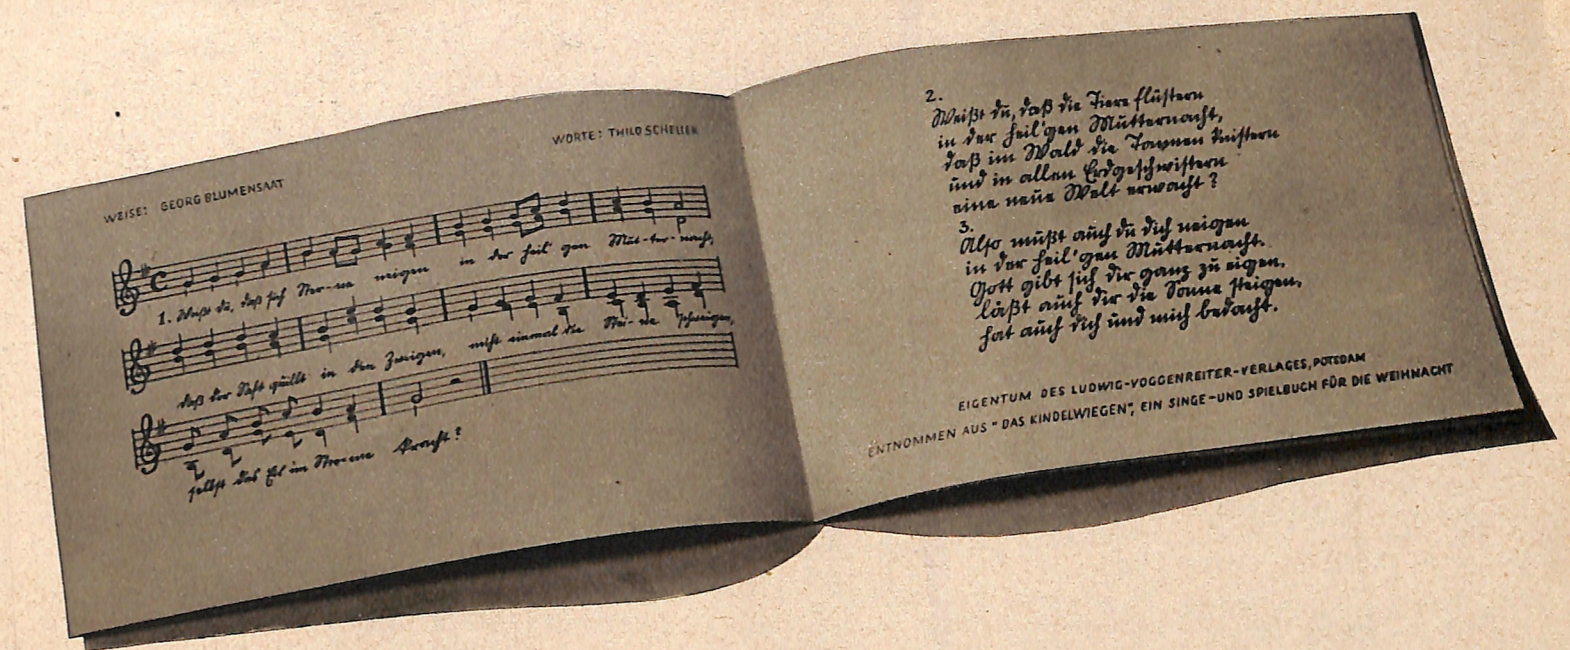 WEISE: GEORG BLUMENSAAT
WORTE: THILO SCHELLER
1. Weißt du, daß sich Ster-ne neigen in der heil'gen Mut-ter-nacht,
daß der Saft quillt in den Zweigen, nicht einmal die Stei-ne schweigen,
selbst das Eis im Stro-me kracht?
2.
Weißt du, daß die Tiere flüstern
in der heil'gen Mutternacht,
daß im Wald die Tannen knistern
und in allen Erdgeschwistern
eine neue Welt erwacht?
3.
Also mußt auch du dich neigen
in der heil'gen Mutternacht.
Gott gibt sich dir ganz zu eigen,
läßt auch dir die Sonne steigen,
hat auch dich und mich bedacht.
EIGENTUM DES LUDWIG-VOGGENREITER-VERLAGES, POTSDAM
ENTNOMMEN AUS "DAS KINDELWIEGEN", EIN SINGE-UND SPIELBUCH FÜR DIE WEIHNACHT